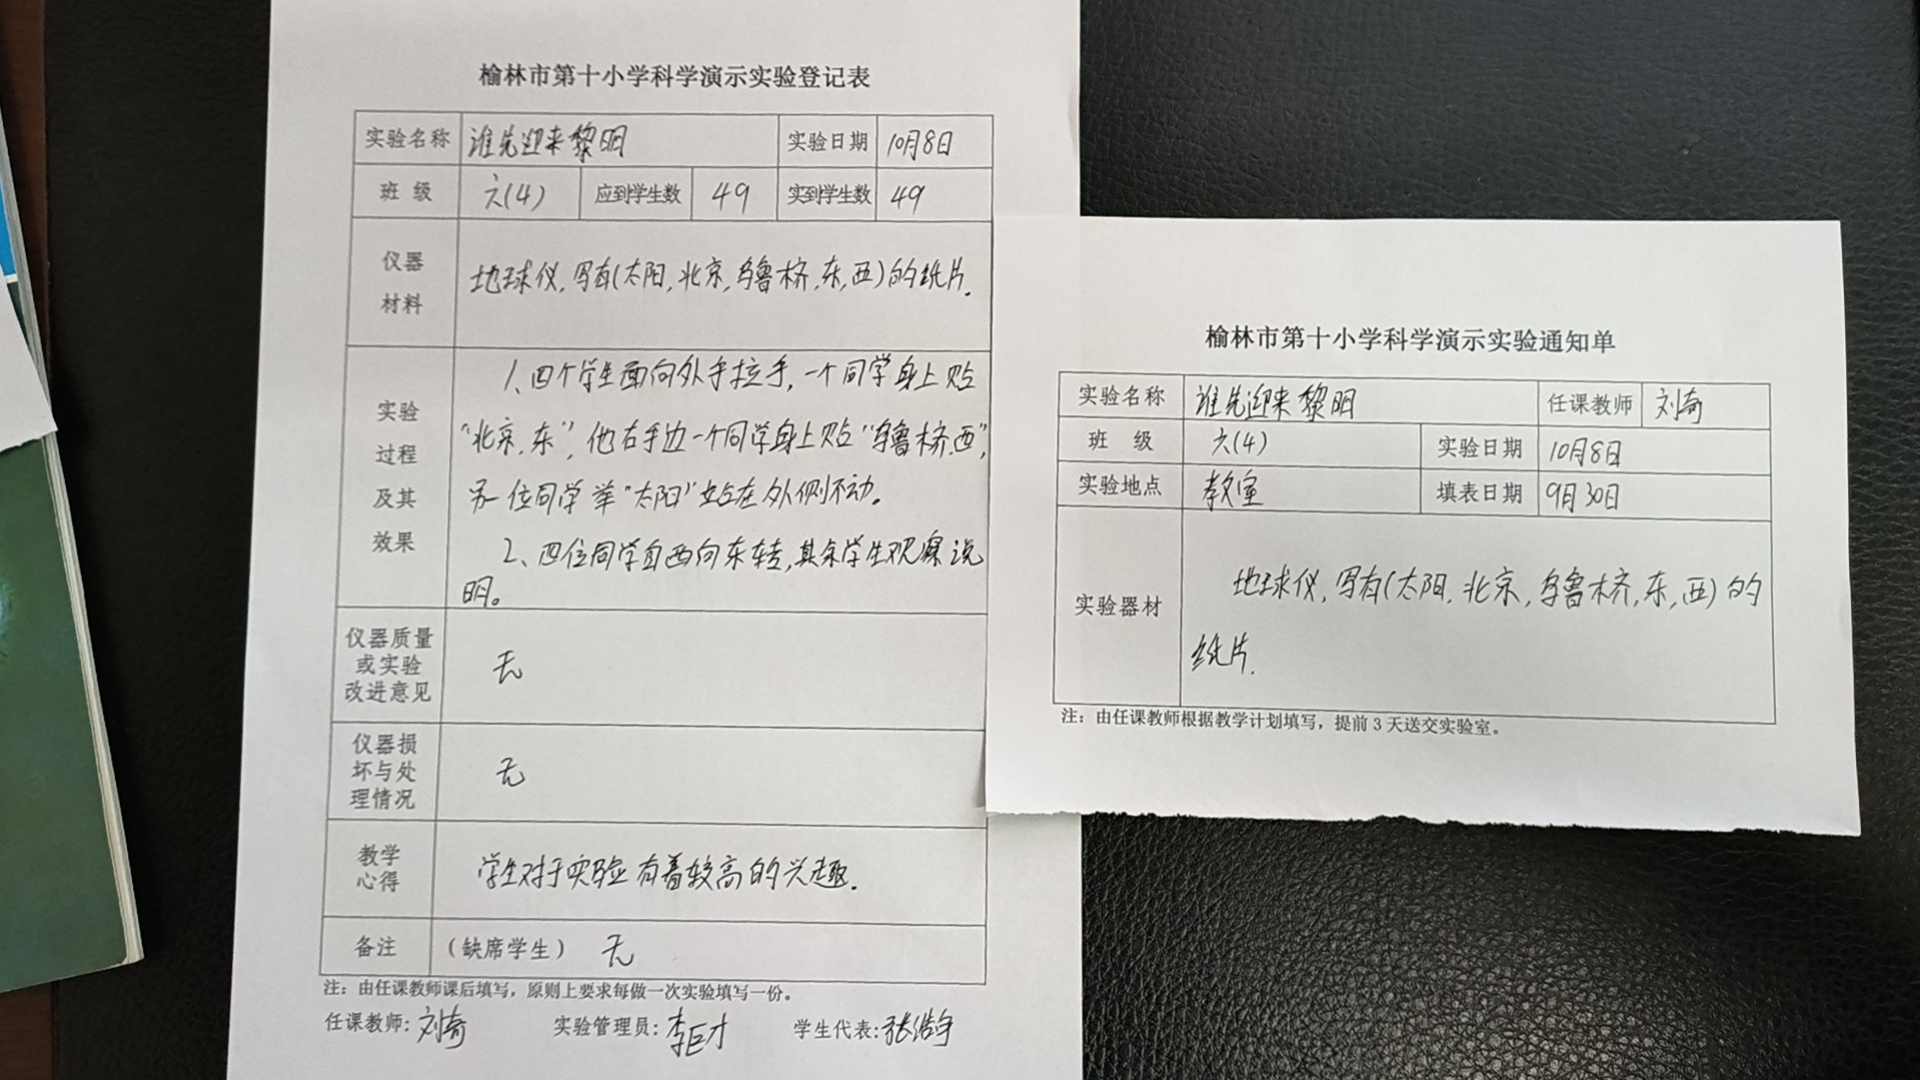 榆林市第十小学科学演示实验登记表
实验名称 谁先迎来黎明 实验日期 10月8日
班 级 六(4) 应到学生数 49 实到学生数 49
仪器
材料
地球仪,写有(太阳,北京,乌鲁木齐,东,西)的纸片.
实验
过程
及其
效果
1、四个学生面向外手拉手,一个同学身上贴
“北京,东”,他右手边一个同学身上贴“乌鲁木齐,西”,
另一位同学举“太阳”站在外侧不动。
2、四位同学自西向东转,其余学生观察说
明。
仪器质量
或实验
改进意见
无
仪器损
坏与处
理情况
无
教学
心得
学生对于实验有着较高的兴趣.
备注 (缺席学生) 无
注:由任课教师课后填写,原则上要求每做一次实验填写一份。
任课教师:刘奇 实验管理员:李巨才 学生代表:张浩宇
榆林市第十小学科学演示实验通知单
实验名称 谁先迎来黎明 任课教师 刘奇
班 级 六(4) 实验日期 10月8日
实验地点 教室 填表日期 9月30日
实验器材
地球仪,写有(太阳,北京,乌鲁木齐,东,西)的
纸片.
注:由任课教师根据教学计划填写,提前3天送交实验室。